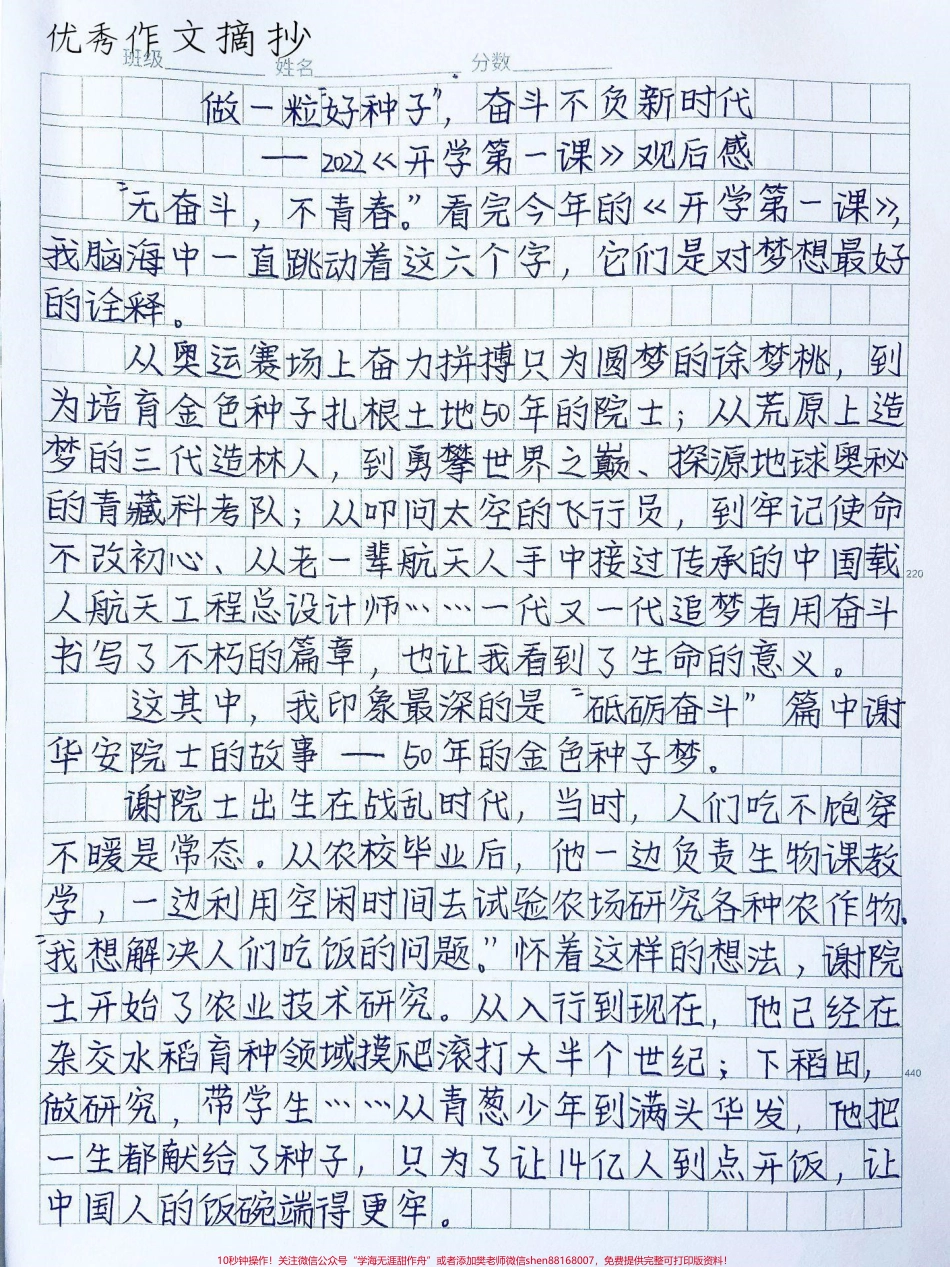 优秀作文摘抄
班级 姓名 分数
做一粒“好种子”，奋斗不负新时代
—2022《开学第一课》观后感
“无奋斗，不青春。”看完今年的《开学第一课》，
我脑海中一直跳动着这六个字，它们是对梦想最好
的诠释。
从奥运赛场上奋力拼搏只为圆梦的徐梦桃，到
为培育金色种子扎根土地50年的院士；从荒原上造
梦的三代造林人，到勇攀世界之巅、探源地球奥秘
的青藏科考队；从叩问太空的飞行员，到牢记使命
不改初心、从老一辈航天人手中接过传承的中国载
220
人航天工程总设计师……一代又一代追梦者用奋斗
书写了不朽的篇章，也让我看到了生命的意义。
这其中，我印象最深的是“砥砺奋斗”篇中谢
华安院士的故事—50年的金色种子梦。
谢院士出生在战乱时代，当时，人们吃不饱穿
不暖是常态。从农校毕业后，他一边负责生物课教
学，一边利用空闲时间去试验农场研究各种农作物。
“我想解决人们吃饭的问题。”怀着这样的想法，谢院
士开始了农业技术研究。从入行到现在，他已经在
杂交水稻育种领域摸爬滚打大半个世纪；下稻田，
440
做研究，带学生……从青葱少年到满头华发，他把
一生都献给了种子，只为了让14亿人到点开饭，让
中国人的饭碗端得更牢。
10秒钟操作！关注微信公众号“学海无涯甜作舟”或者添加樊老师微信shen88168007，免费提供完整可打印版资料！